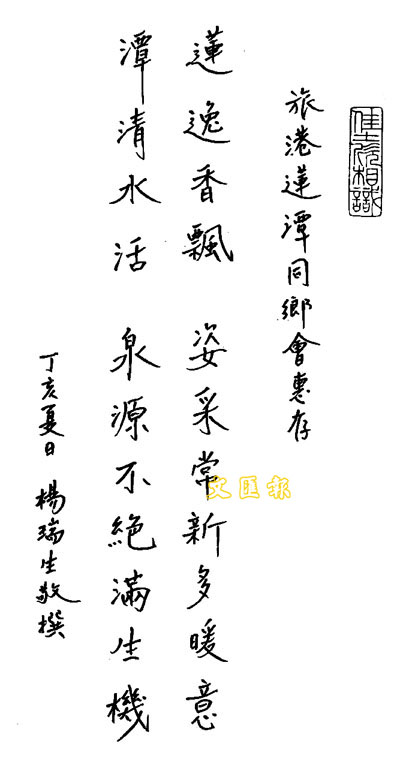 旅港蓮潭同鄉會惠存
蓮逸香飄 姿采常新多暖意
潭清水活 泉源不絕滿生機
丁亥夏日 楊瑞生敬撰
文匯報